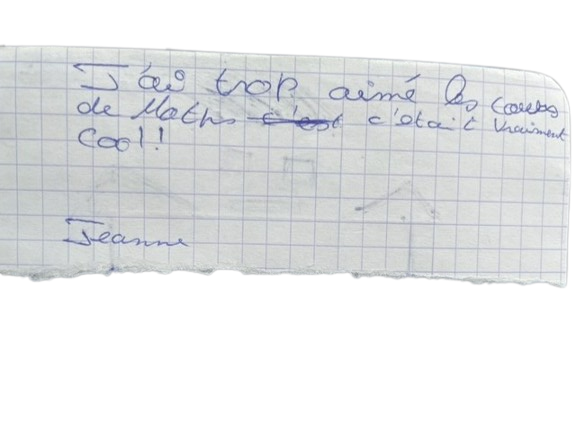 J'ai trop aimé les cours
de Maths c'est c'était vraiment
Cool!!
Jeanne